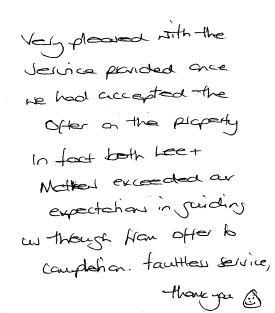 Very pleased with the
service provided once
we had accepted the
offer on the property
In fact both Lee +
exceeded our
expectations in guiding
us through from offer to
completion. faultless service,
thank you